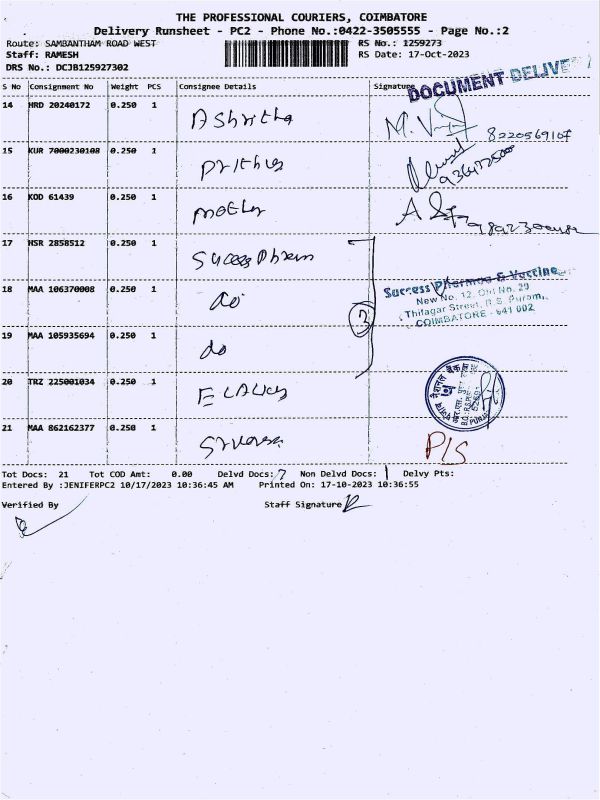 THE PROFESSIONAL COURIERS, COIMBATORE
Delivery Runsheet - PC2 - Phone No.:0422-3505555 - Page No.:2
Route: SAMBANTHAM ROAD WEST RS No.: 1259273
Staff: RAMESH RS Date: 17-Oct-2023
DRS No.: DCJB125927302
DOCUMENT DELIVE
S No Consignment No Weight PCS Consignee Details Signature
14 HRD 20240172 0.250 1 Ashritha
8220569107
15 KUR 7000230108 0.250 1
16 KOD 61439 0.250 1
17 HSR 2858512 0.250 1 Success Pharm
18 MAA 106370008 0.250 1 do
3
Success Pharma & Vaccine
New No. 12, Old No. 29
Thilagar Street, R.S. Puram,
COIMBATORE - 641 002
19 MAA 105935694 0.250 1 do
20 TRZ 225001034 0.250 1
21 MAA 862162377 0.250 1
P/S
Tot Docs: 21 Tot COD Amt: 0.00 Delvd Docs: 7 Non Delvd Docs: 1 Delvy Pts:
Entered By :JENIFERPC2 10/17/2023 10:36:45 AM Printed On: 17-10-2023 10:36:55
Verified By Staff Signature